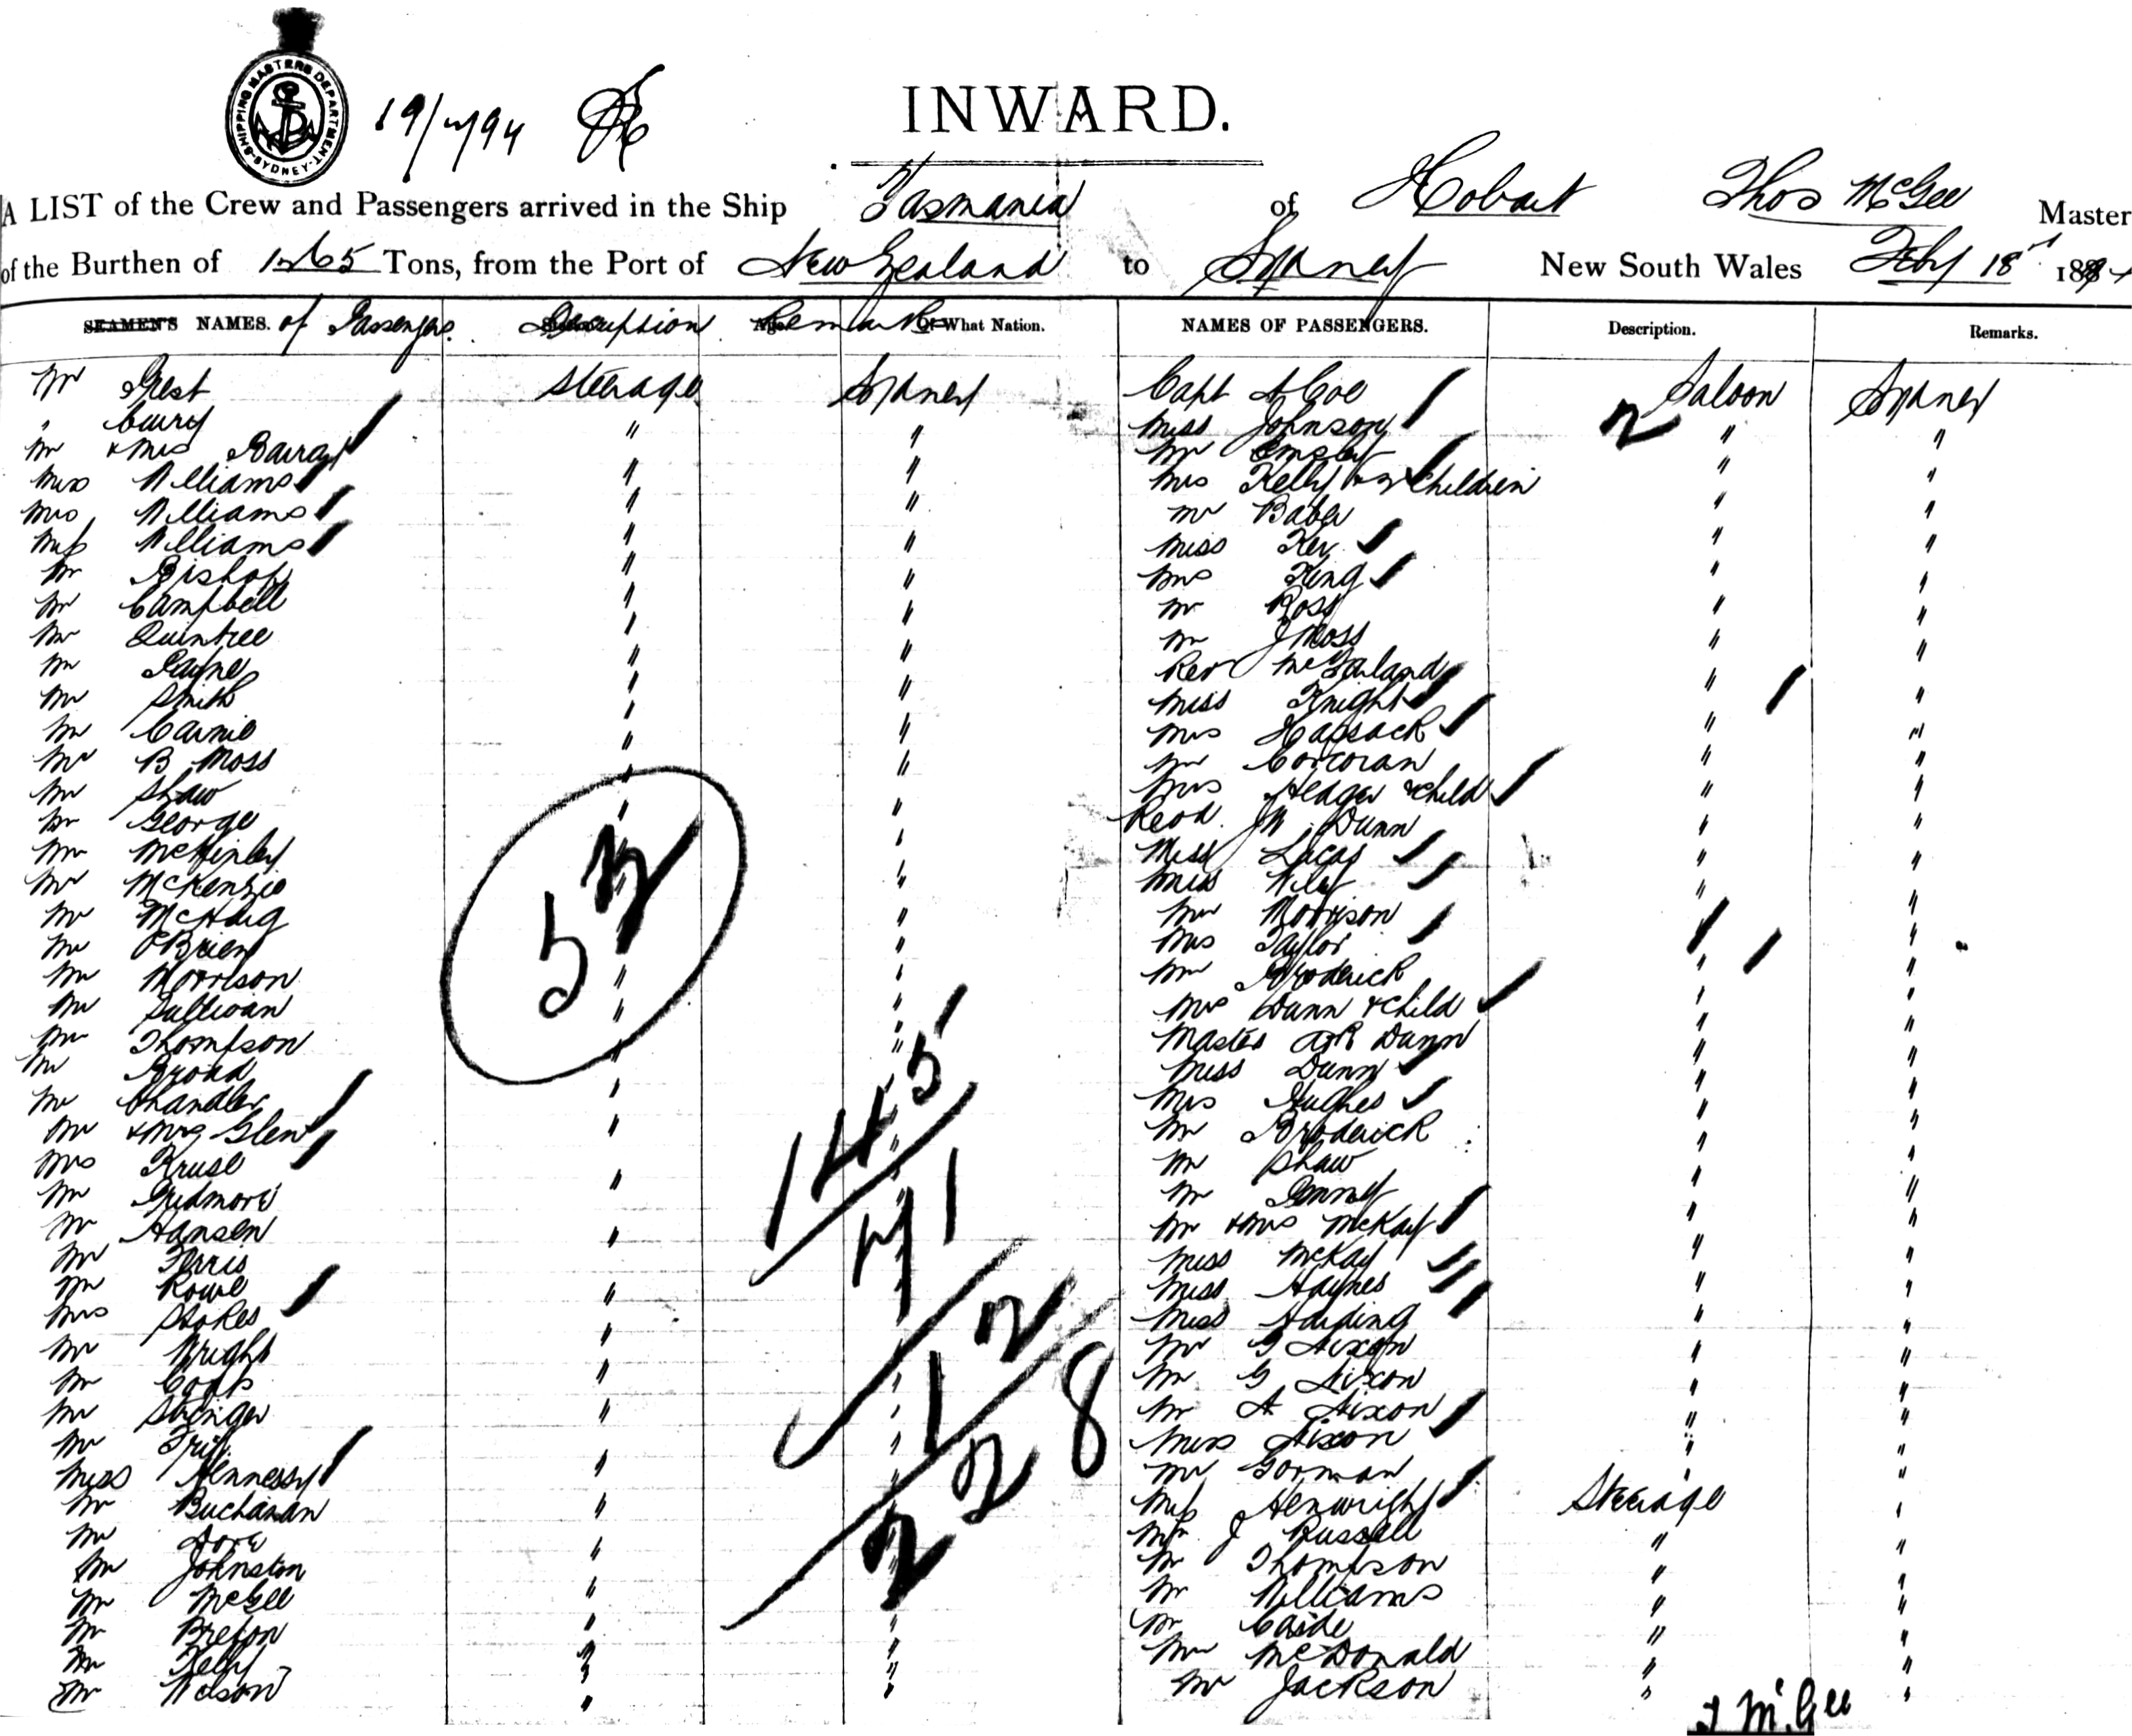 SHIPPING MASTERS DEPARTMENT SYDNEY
19/2/94
INWARD.
A LIST of the Crew and Passengers arrived in the Ship Tasmania of Hobart Thos McGee Master
of the Burthen of 1265 Tons, from the Port of New Zealand to Sydney New South Wales Feby 18 1894
SEAMEN'S NAMES. of Passengers. Description Remarks Of What Nation.
Mr Prest Steerage Sydney
" Curry " "
Mr & Mrs " "
Miss Williams " "
Mrs Williams " "
Miss Williams " "
Mr Bishop " "
Mr Campbell " "
Mr Quintree " "
Mr Payne " "
Mr Smith " "
Mr Cairns " "
Mr B Moss " "
Mr Shaw " "
Mr George " "
Mr McKinley " "
Mr McKenzie " "
Mr McHaig " "
Mr O'Brien " "
Mr Morrison " "
Mr Sullivan " "
Mr Thompson " "
Mr Broad " "
Mr Chandler " "
Mr & Mrs Glen " "
Mrs Kruse " "
Mr " "
Mr Hansen " "
Mr Ferris " "
Mr Rowe " "
Mrs Stokes " "
Mr Wright " "
Mr " "
Mr Stringer " "
Mr " "
Miss Hennessy " "
Mr Buchanan " "
Mr Dore " "
Mr Johnston " "
Mr McGee " "
Mr Breton " "
Mr Kelly " "
Mr Nelson " "
53
145
71
12
228
NAMES OF PASSENGERS. Description. Remarks.
Capt A Coe Saloon Sydney
Miss Johnson 2 " "
Mr " "
Mrs Kelly & 2 Children " "
Mr Baber " "
Miss Ker " "
Mrs King " "
Mr Ross " "
Mr J Moss " "
Rev McFarland " "
Miss Knight " "
Mrs " "
Mr Corcoran " "
Mrs Hedger & child " "
Revd J W Dunn " "
Miss Lucas " "
Miss " "
Mr Morrison " "
Mrs Taylor " "
Mr Broderick " "
Mrs Dunn & Child " "
Master Dunn " "
Miss Dunn " "
Mrs Hughes " "
Mr Broderick " "
Mr Shaw " "
Mr " "
Mr & Mrs McKay " "
Miss McKay " "
Miss Haynes " "
Miss Harding " "
Mr G Dixon " "
Mr G Dixon " "
Mr A Dixon " "
Miss Dixon " "
Mr Gorman " "
Miss Henwright Steerage "
Mr J Russell " "
Mr Thompson " "
Mr Williams " "
Mr " "
Mr McDonald " "
Mr Jackson " "
T McGee